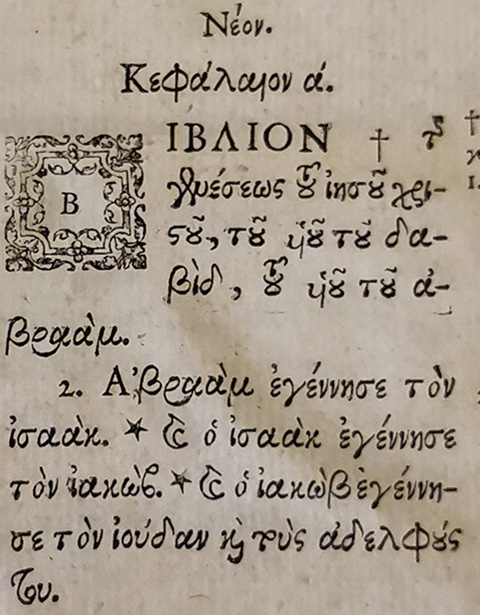 Νέον.
Κεφάλαιον ά.
ΒΙΒΛΙΟΝ † τῆς
γενέσεως τοῦ ἰησοῦ χρι-
στοῦ, τοῦ ὑιοῦ τοῦ δα-
βὶδ, τοῦ ὑιοῦ τοῦ ἀ-
βραὰμ.
2. Ἀβραὰμ ἐγέννησε τὸν
ἰσαὰκ. * Καὶ ὁ ἰσαὰκ ἐγέννησε
τὸν ἰακὼβ. * Καὶ ὁ ἰακὼβ ἐγέννη-
σε τὸν ἰούδαν καὶ τοὺς ἀδελφούς
του.